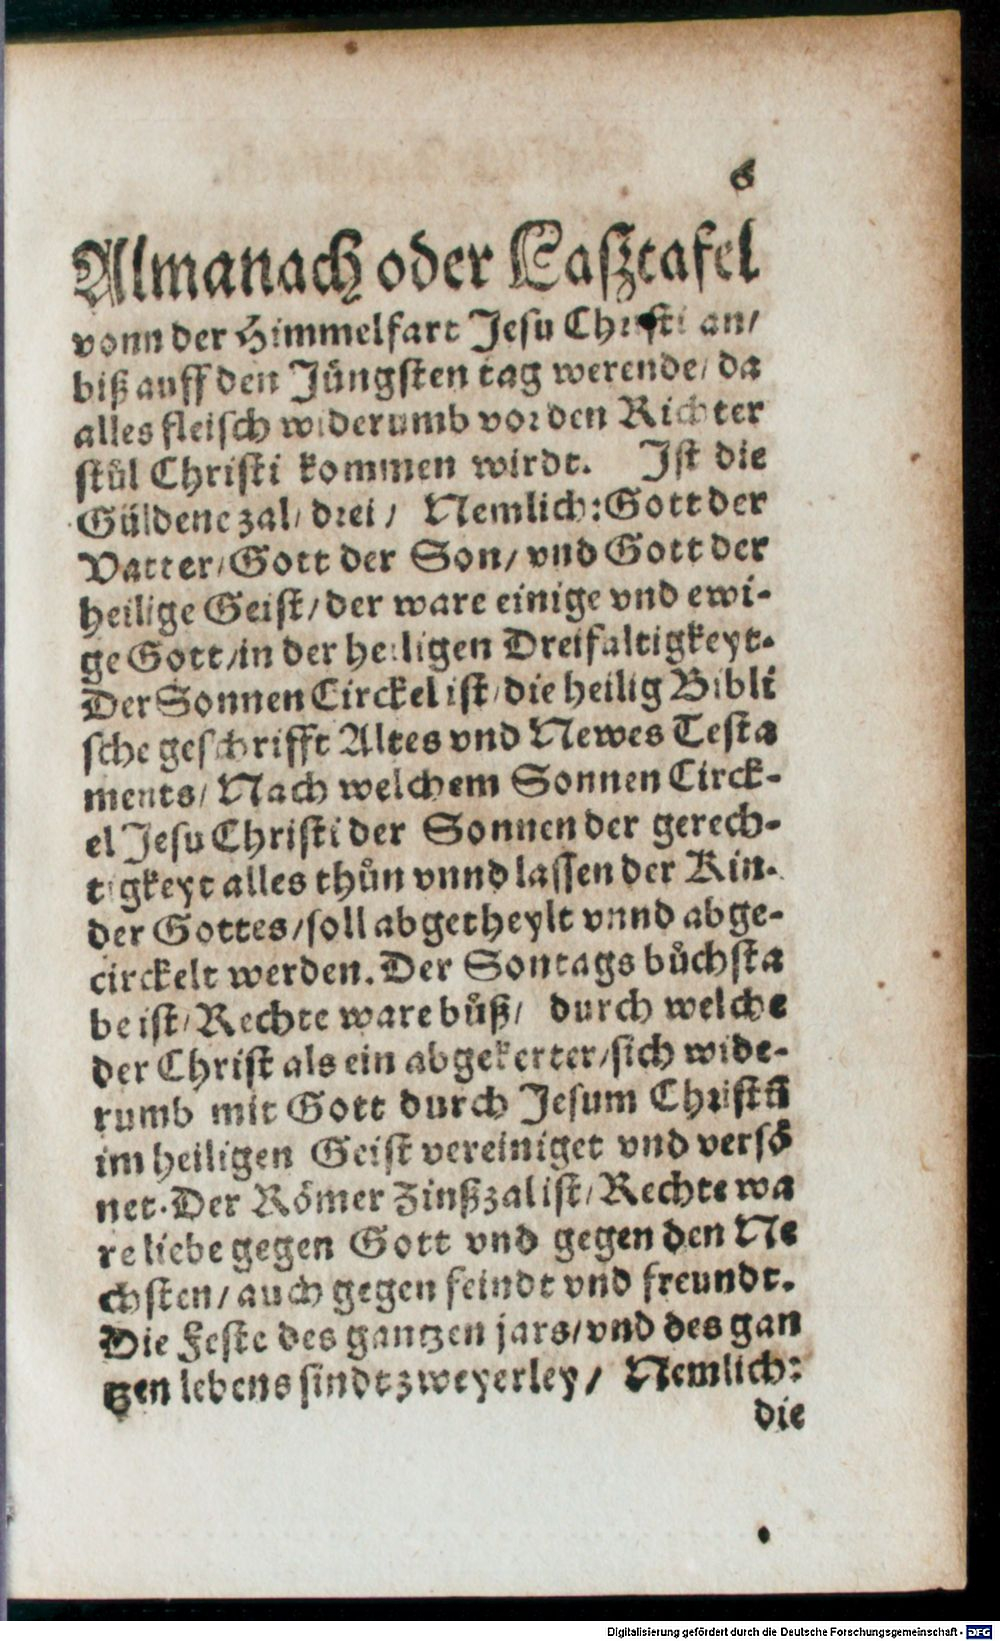 6
Almanach oder Laßtafel
vonn der Himmelfart Jesu Christi an/
biß auff den Jüngsten tag werende/ da
alles fleisch widerumb vor den Richter
stůl Christi kommen wirdt. Ist die
Güldene zal/ drei/ Nemlich: Gott der
Vatter/ Gott der Son/ vnd Gott der
heilige Geist/ der ware einige vnd ewi-
ge Gott/ in der heiligen Dreifaltigkeyt.
Der Sonnen Circkel ist/ die heilig Bibli
sche geschrifft Altes vnd Newes Testa
ments/ Nach welchem Sonnen Circk-
el Jesu Christi der Sonnen der gerech-
tigkeyt alles thůn vnnd lassen der Kin-
der Gottes/ soll abgetheylt vnnd abge-
circkelt werden. Der Sontags bůchsta
be ist/ Rechte ware bůß/ durch welche
der Christ als ein abgekerter/ sich wide-
rumb mit Gott durch Jesum Christū
im heiligen Geist vereiniget vnd versö
net. Der Römer Zinßzal ist/ Rechte wa
re liebe gegen Gott vnd gegen den Ne
chsten/ auch gegen feindt vnd freundt.
Die Feste des gantzen jars/ vnd des gan
tzen lebens sindt zweyerley/ Nemlich:
die
Digitalisierung gefördert durch die Deutsche Forschungsgemeinschaft - DFG